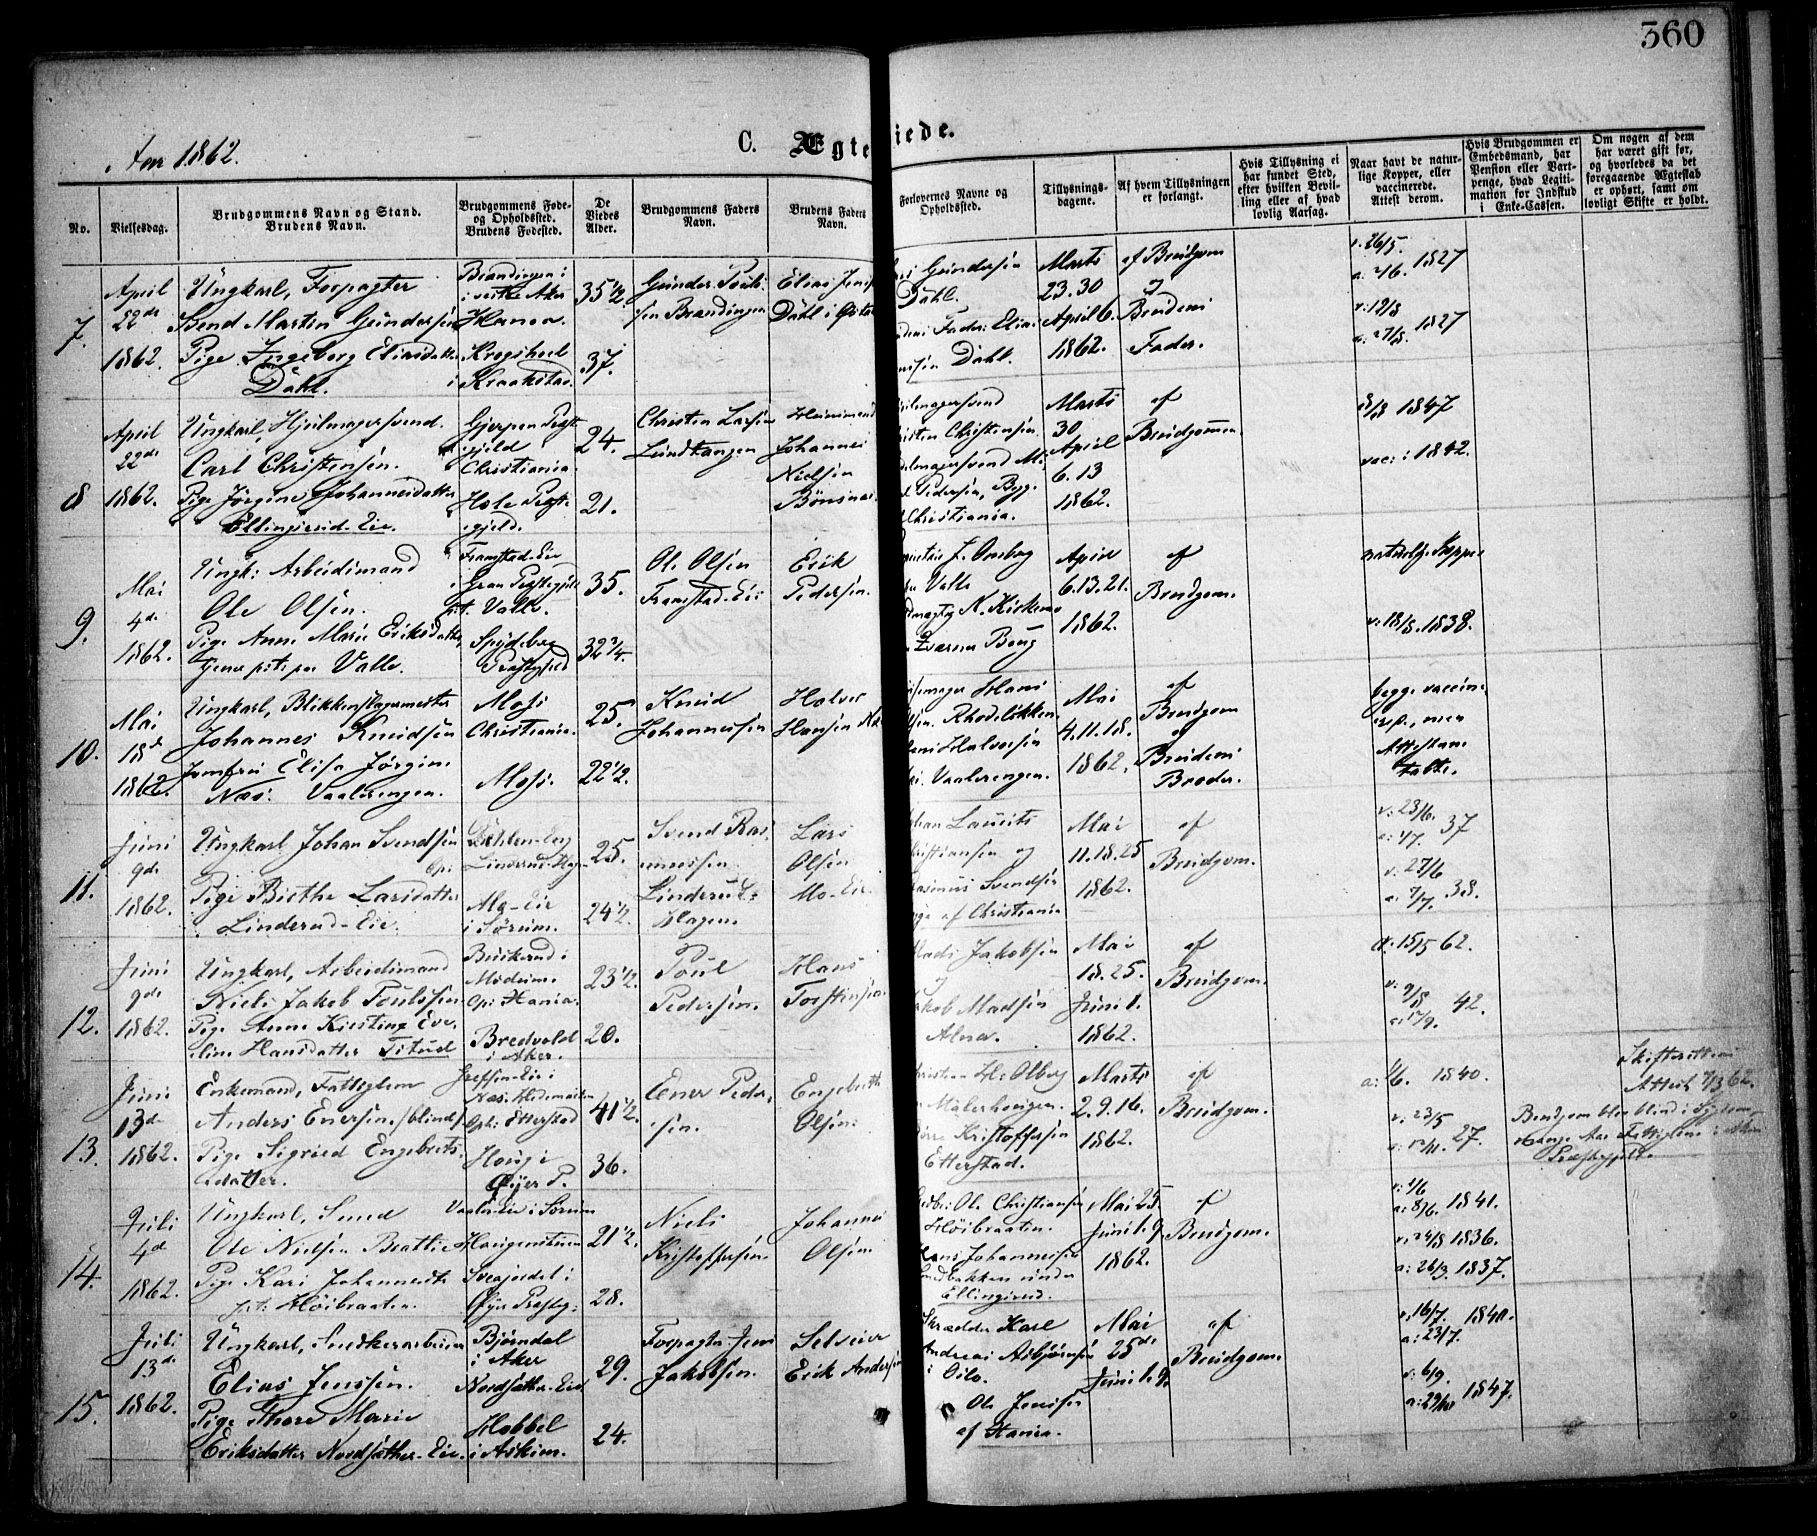 360
Aar 1862.
C. Ægteviede.
No.
Vielsesdag.
Brudgommens Navn og Stand.
Brudens Navn.
Brudgommens Føde-
og Opholdssted.
Brudens Fødested.
De
Viedes
Alder.
Brudgommens Faders
Navn.
Brudens Faders
Navn.
Forlovernes Navne og
Opholdssted.
Tillysnings-
dagene.
Af hvem Tillysningen
er forlangt.
Hvis Tillysning ei
har fundet Sted,
efter hvilken Bevil-
ling eller af hvad
lovlig Aarsag.
Naar havt de natur-
lige Kopper, eller
vaccinerede.
Attest derom.
Hvis Brudgommen er
Embedsmand, har
Pension eller Vart-
penge, hvad Legiti-
mation for Indskud
i Enke-Cassen.
Om nogen af dem
har været gift før,
og hvorledes da det
foregaaende Ægteskab
er ophørt, samt om
lovligt Skifte er holdt.
7.
April
22de
1862.
Ungkarl, Forpagter
Svend Martin Gundersen
Pige Ingeborg Eliasdatter
Dahl.
Brandingen i
vestre Aker
Hanoa.
Krogshoel
i Kraakstad.
35 1/2.
37.
Gunder Poul-
sen Brandingen
Elias Jens
Dahl i
Gundersen
Dahl.
Fader Elias
Dahl.
Marts
23.30
April 6.
1862.
af Brudgom
og
Brudens
Fader.
v. 26/5.
a. 4/6. 1827
v: 19/8
a. 27/8. 1827
8
April
22de
1862.
Ungkarl, Hjulmagersvend.
Carl Christensen.
Pige Jørgine Johannesdatter
Ellingsrud-Eie.
Gjerpen Præst
gjeld
Christiania.
Hole Præste-
gjeld.
24.
21.
Christen Larsen
Lundtangen
Johannes
Nielsen
Bønsnæs
Hjulmagersvend
Christen Christensen
Hjulmagersvend
Pedersen, Begge
Christiania.
Marts
30
April
6.13
1862.
af
Brudgommen.
8/8 1847
vac: i 1842.
9.
Mai
4de
1862.
Ungk: Arbeidsmand
Ole Olsen.
Pige Anne Marie Eriksdatter
Tjenepige paa Valle.
Framstad-Eie
i Gran Præstegjeld
pt. Valle.
Spydeberg
Præstegjeld
35.
32 3/4.
Ole Olsen
Framstad-Eie
Erik
Pedersen.
Valle
April
6.13.21.
1862.
af
Brudgom.
naturlige Kopper
v: 18/8. 1838.
10.
Mai
18de
1862.
Ungkarl, Blikkenslagermester
Johannes Knudsen
Jomfru Elise Jørgine
Næs: Vaalerengen.
Moss
Christiania.
Moss.
25.
22 1/2.
Knud
Johannessen
Halvor
Hansen
Hans
Rhodeløkken
Hans Halvorsen
Vaalerengen.
Mai
4.11.18.
1862.
af
Brudgom
og
Brudens
Broder.
begge vaccine-
resp., men
Attesterne
tabte.
11.
Juni
9de
1862.
Ungkarl Johan Svendsen
Pige Birthe Larsdatter
Linderud-Eie.
Linderud-Hagen
Mo-Eie
i Sørum.
25.
24 1/2.
Svend Ras-
mussen
Linderud-
Hagen.
Lars
Olsen
Mo-Eie
Johan Laurits
Christiansen og
Rasmus Svendsen
begge af Christiania
Mai
11.18.25
1862.
af
Brudgom.
v. 23/6.
a: 4/7. 37
v. 27/6
a. 7/7. 38.
12.
Juni
9de
1862.
Ungkarl, Arbeidsmand
Niels Jakob Poulssen
Pige Anne Kirstine Eve-
line Hansdatter
Buskerud i
Modum.
Op: Hania.
Bredvold
i Aker.
23 1/2.
20.
Poul
Pedersen.
Hans
Torstensen
Mads Jakobsen
og
Jakob Madsen
Alna.
Mai
18.25.
Juni 1.
1862.
af
Brudgom.
a: 15/5 62.
42.
13.
Juni
13de
1862.
Enkemand, Fattiglem
Anders Enersen /blind/
Pige Sigried Engebrets-
datter.
Næs: Hedemarken
Op: Etterstad
Houg i
Øyer P.
41 1/2.
36.
Ener Peder-
sen.
Engebreth
Olsen.
Christian H: Olberg
Malerhougen.
Kristoffersen
Etterstad.
Marts
2.9.16.
1862.
af
Brudgom.
a: 1/6. 1840.
v: 23/5
27.
Brudgom blev blind i
mange Aar Fattiglem i Aker
Præstegjeld.
Skifterettens
Attest 7/3 62.
14.
Juli
4de
1862.
Ungkarl, Smed
Ole Nielsen Brattlie
Pige Kari Johannesdtr
pt: Høibraaten.
Vaaler-Eie i Sørum
Haugerstuen
Svegjordet i
Øyer Præsteg:
21 1/2.
28.
Niels
Kristoffersen.
Johannes
Olsen
Ole Christiansen
Høibraaten.
Hans Johannessen
Sandbakken under
Ellingsrud.
Mai 25.
Juni 1. 9.
1862.
af
Brudgom.
v: 1/6
a: 8/6. 1841.
v: 24/8 1836.
a: 26/3. 1837.
15.
Juli
13de
1862.
Ungkarl, Snedkerarbeider
Elias Jenssen.
Pige Thore Marie
Eriksdatter Nordsæther-Eie.
Bjørndal
i Aker
Nordsæther-Eie
Habbel
i Askim.
29.
24.
Forpagter Jens
Jakobsen
Selveier
Erik Andersen
Skrædder Karl
Andreas Asbjørnsen
i Oslo.
Ole Jenssen
af Hania.
Mai
25de
Juni 1. 9.
af
Brudgom.
v: 16/7. 1840.
a: 23/7.
v: 6/9.
a: 29/10 1847.